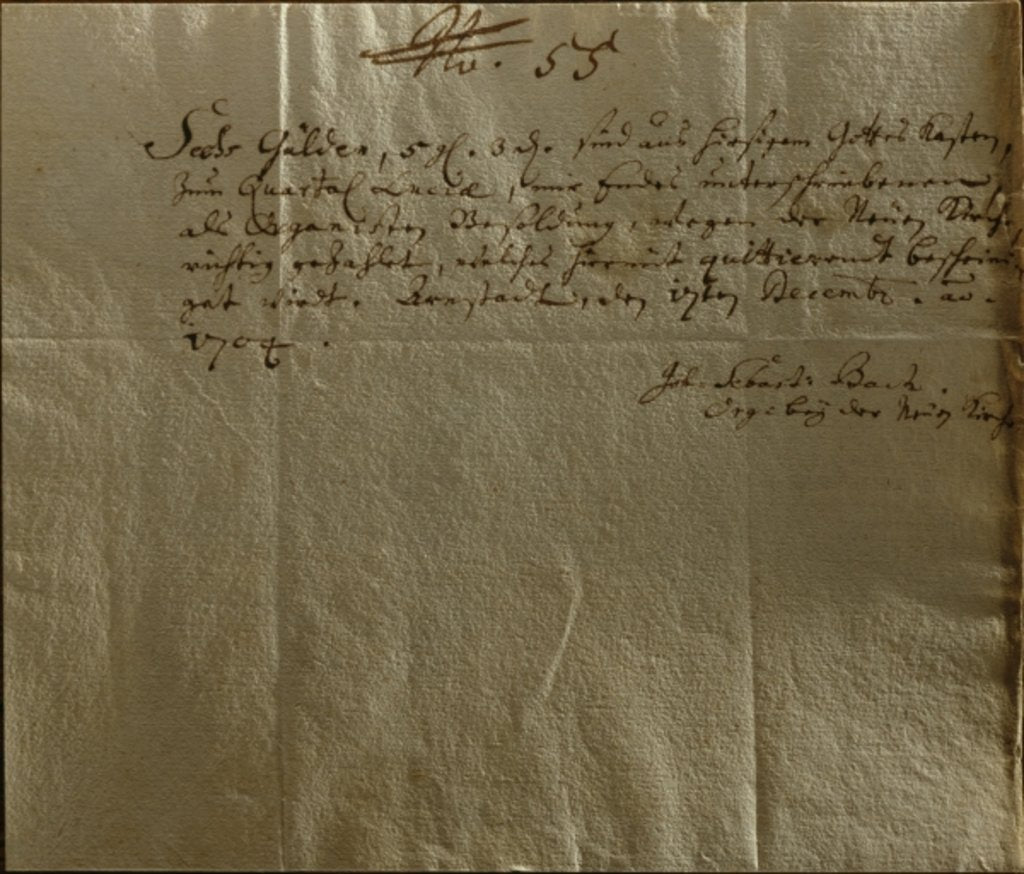 No. 55
Sechs Gülden, 5 gl. 3 d. sind aus hiesigem Gottes Kasten,
zum Quartal Luciæ, mir Endes unterschriebenen,
als Organisten Besoldung, wegen der Neüen Kirche,
richtig gezahlet, welches hiermit quittierendt beschei-
get wirdt. Arnstadt, den Decembr. ao.
Joh: Sebast: Bach.
Org: bey der Neüen Kirche